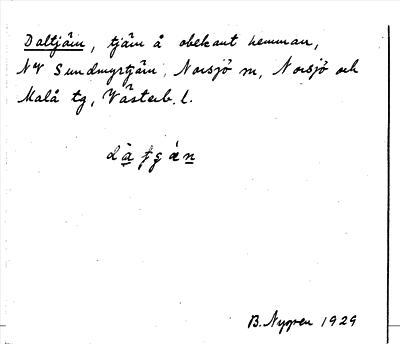 Daltjärn, tjärn å obekant hemman,
NV Sundmyrtjärn, Norsjö sn, Norsjö och
Malå tg, Västerb. l.
B. Nygren 1929